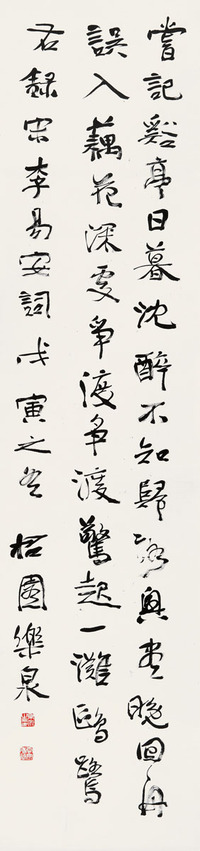 嘗記谿亭日暮沈醉不知歸路興盡晚回舟
誤入藕花深處爭渡爭渡驚起一灘鷗鷺
右録宋李易安詞戊寅之冬柘園樂泉